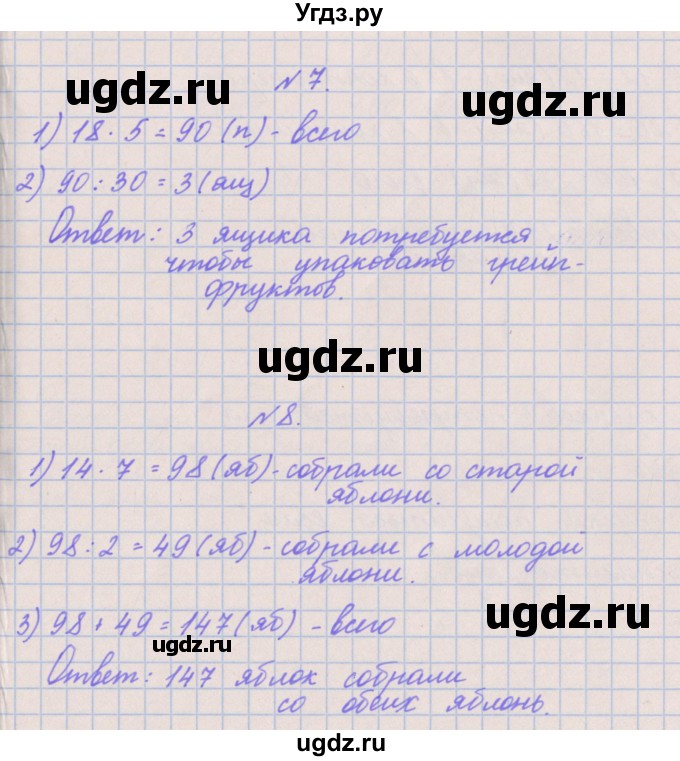 Угдз.ру
ugdz.ru
ugdz.ru
№ 7.
1) 18 · 5 = 90 (п) - всего
2) 90 : 30 = 3 (ящ)
Ответ: 3 ящика потребуется
чтобы упаковать грейп-
фруктов.
ugdz.ru
№ 8.
1) 14 · 7 = 98 (яб) - собрали со старой
яблони.
2) 98 : 2 = 49 (яб) - собрали с молодой
яблони.
3) 98 + 49 = 147 (яб) - всего
ugdz.ru
ugdz.ru
Ответ: 147 яблок собрали
со обеих яблонь.
ugdz.ru